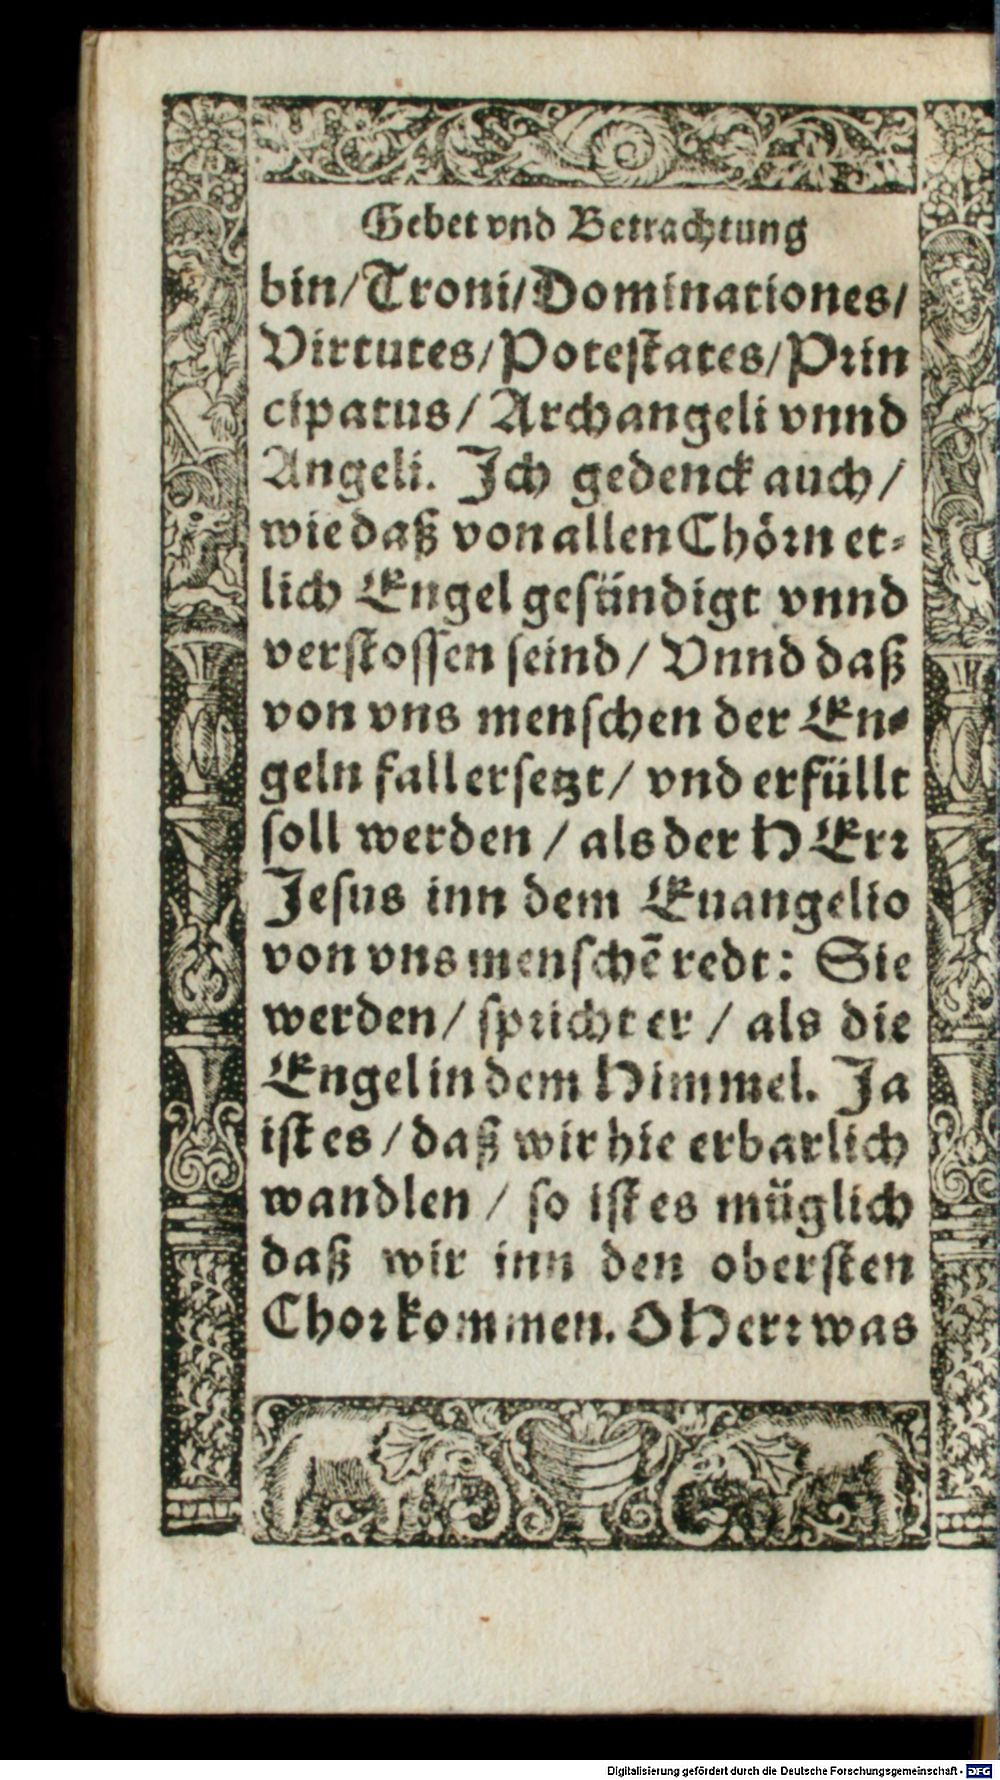 Gebet vnd Betrachtung
bin/Troni/Dominationes/
Virtutes/Potestates/Prin
cipatus/ Archangeli vnnd
Angeli. Ich gedenck auch/
wie daß von allen Chörn et-
lich Engel gesündigt vnnd
verstossen seind/ Vnnd daß
von vns menschen der En-
geln fall ersetzt/ vnd erfüllt
soll werden / als der HErr
Jesus inn dem Euangelio
von vns menschē redt: Sie
werden/ spricht er / als die
Engel in dem Himmel. Ja
ist es / daß wir hie erbarlich
wandlen / so ist es müglich
daß wir inn den obersten
Chor kommen. O Herr was
Digitalisierung gefördert durch die Deutsche Forschungsgemeinschaft - DFG